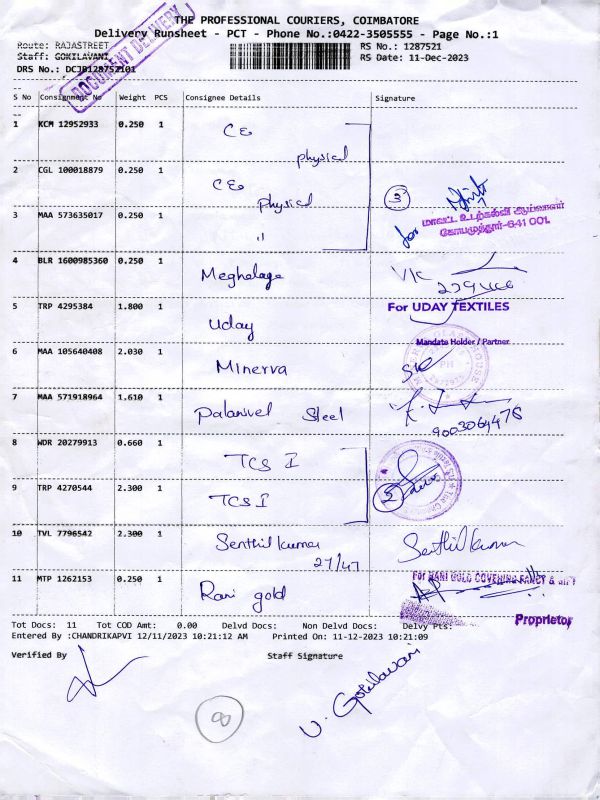 THE PROFESSIONAL COURIERS, COIMBATORE
Delivery Runsheet - PCT - Phone No.:0422-3505555 - Page No.:1
Route: RAJASTREET
Staff: GOKILAVANI
DRS No.: DCJB128752101
DOCUMENT DELIVERY
RS No.: 1287521
RS Date: 11-Dec-2023
S No Consignment No Weight PCS Consignee Details Signature
1 KCM 12952933 0.250 1 CEO
physical
2 CGL 100018879 0.250 1 CEO
physical
3 MAA 573635017 0.250 1 "
3
for
மாவட்ட உடற்கல்வி ஆய்வாளர்
கோயமுத்தூர்-641 001.
4 BLR 1600985360 0.250 1 Meghalaya
5 TRP 4295384 1.800 1 Uday
For UDAY TEXTILES
Mandate Holder / Partner
6 MAA 105640408 2.030 1 Minerva
7 MAA 571918964 1.610 1 Palanivel Steel
9003064478
8 WDR 20279913 0.660 1 TCS I
9 TRP 4270544 2.300 1 TCS I
2
10 TVL 7796542 2.300 1 Senthil kumar Senthil kumar
27/47
11 MTP 1262153 0.250 1 Rani gold
For RANI GOLD COVERING FANCY & GIFT
Proprietor
Tot Docs: 11 Tot COD Amt: 0.00 Delvd Docs: Non Delvd Docs: Delvy Pts:
Entered By :CHANDRIKAPVI 12/11/2023 10:21:12 AM Printed On: 11-12-2023 10:21:09
Verified By Staff Signature
8
V. Gokilavani